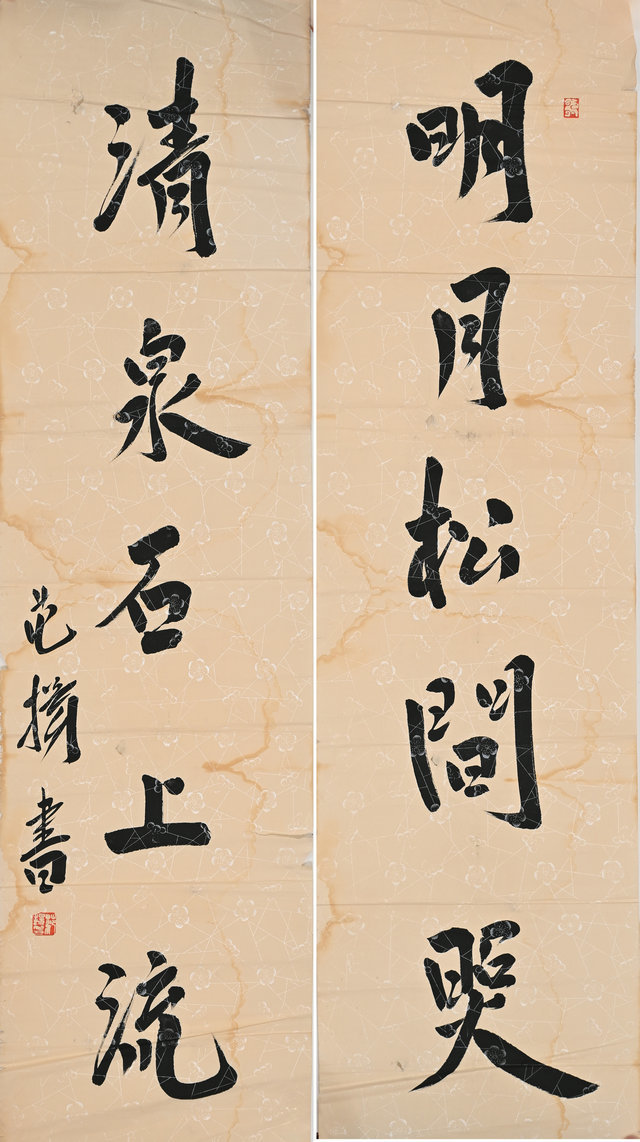 明月松間照
清泉石上流
書